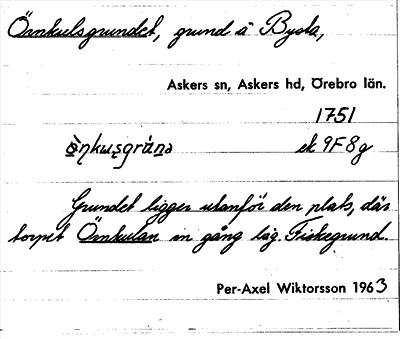 Örnkulsgrundet, grund å Bysta,
Askers sn, Askers hd, Örebro län.
1751
ek 9F8g
Grundet ligger utanför den plats, där
torpet Örnkulan en gång låg. Fiskegrund.
Per-Axel Wiktorsson 1963